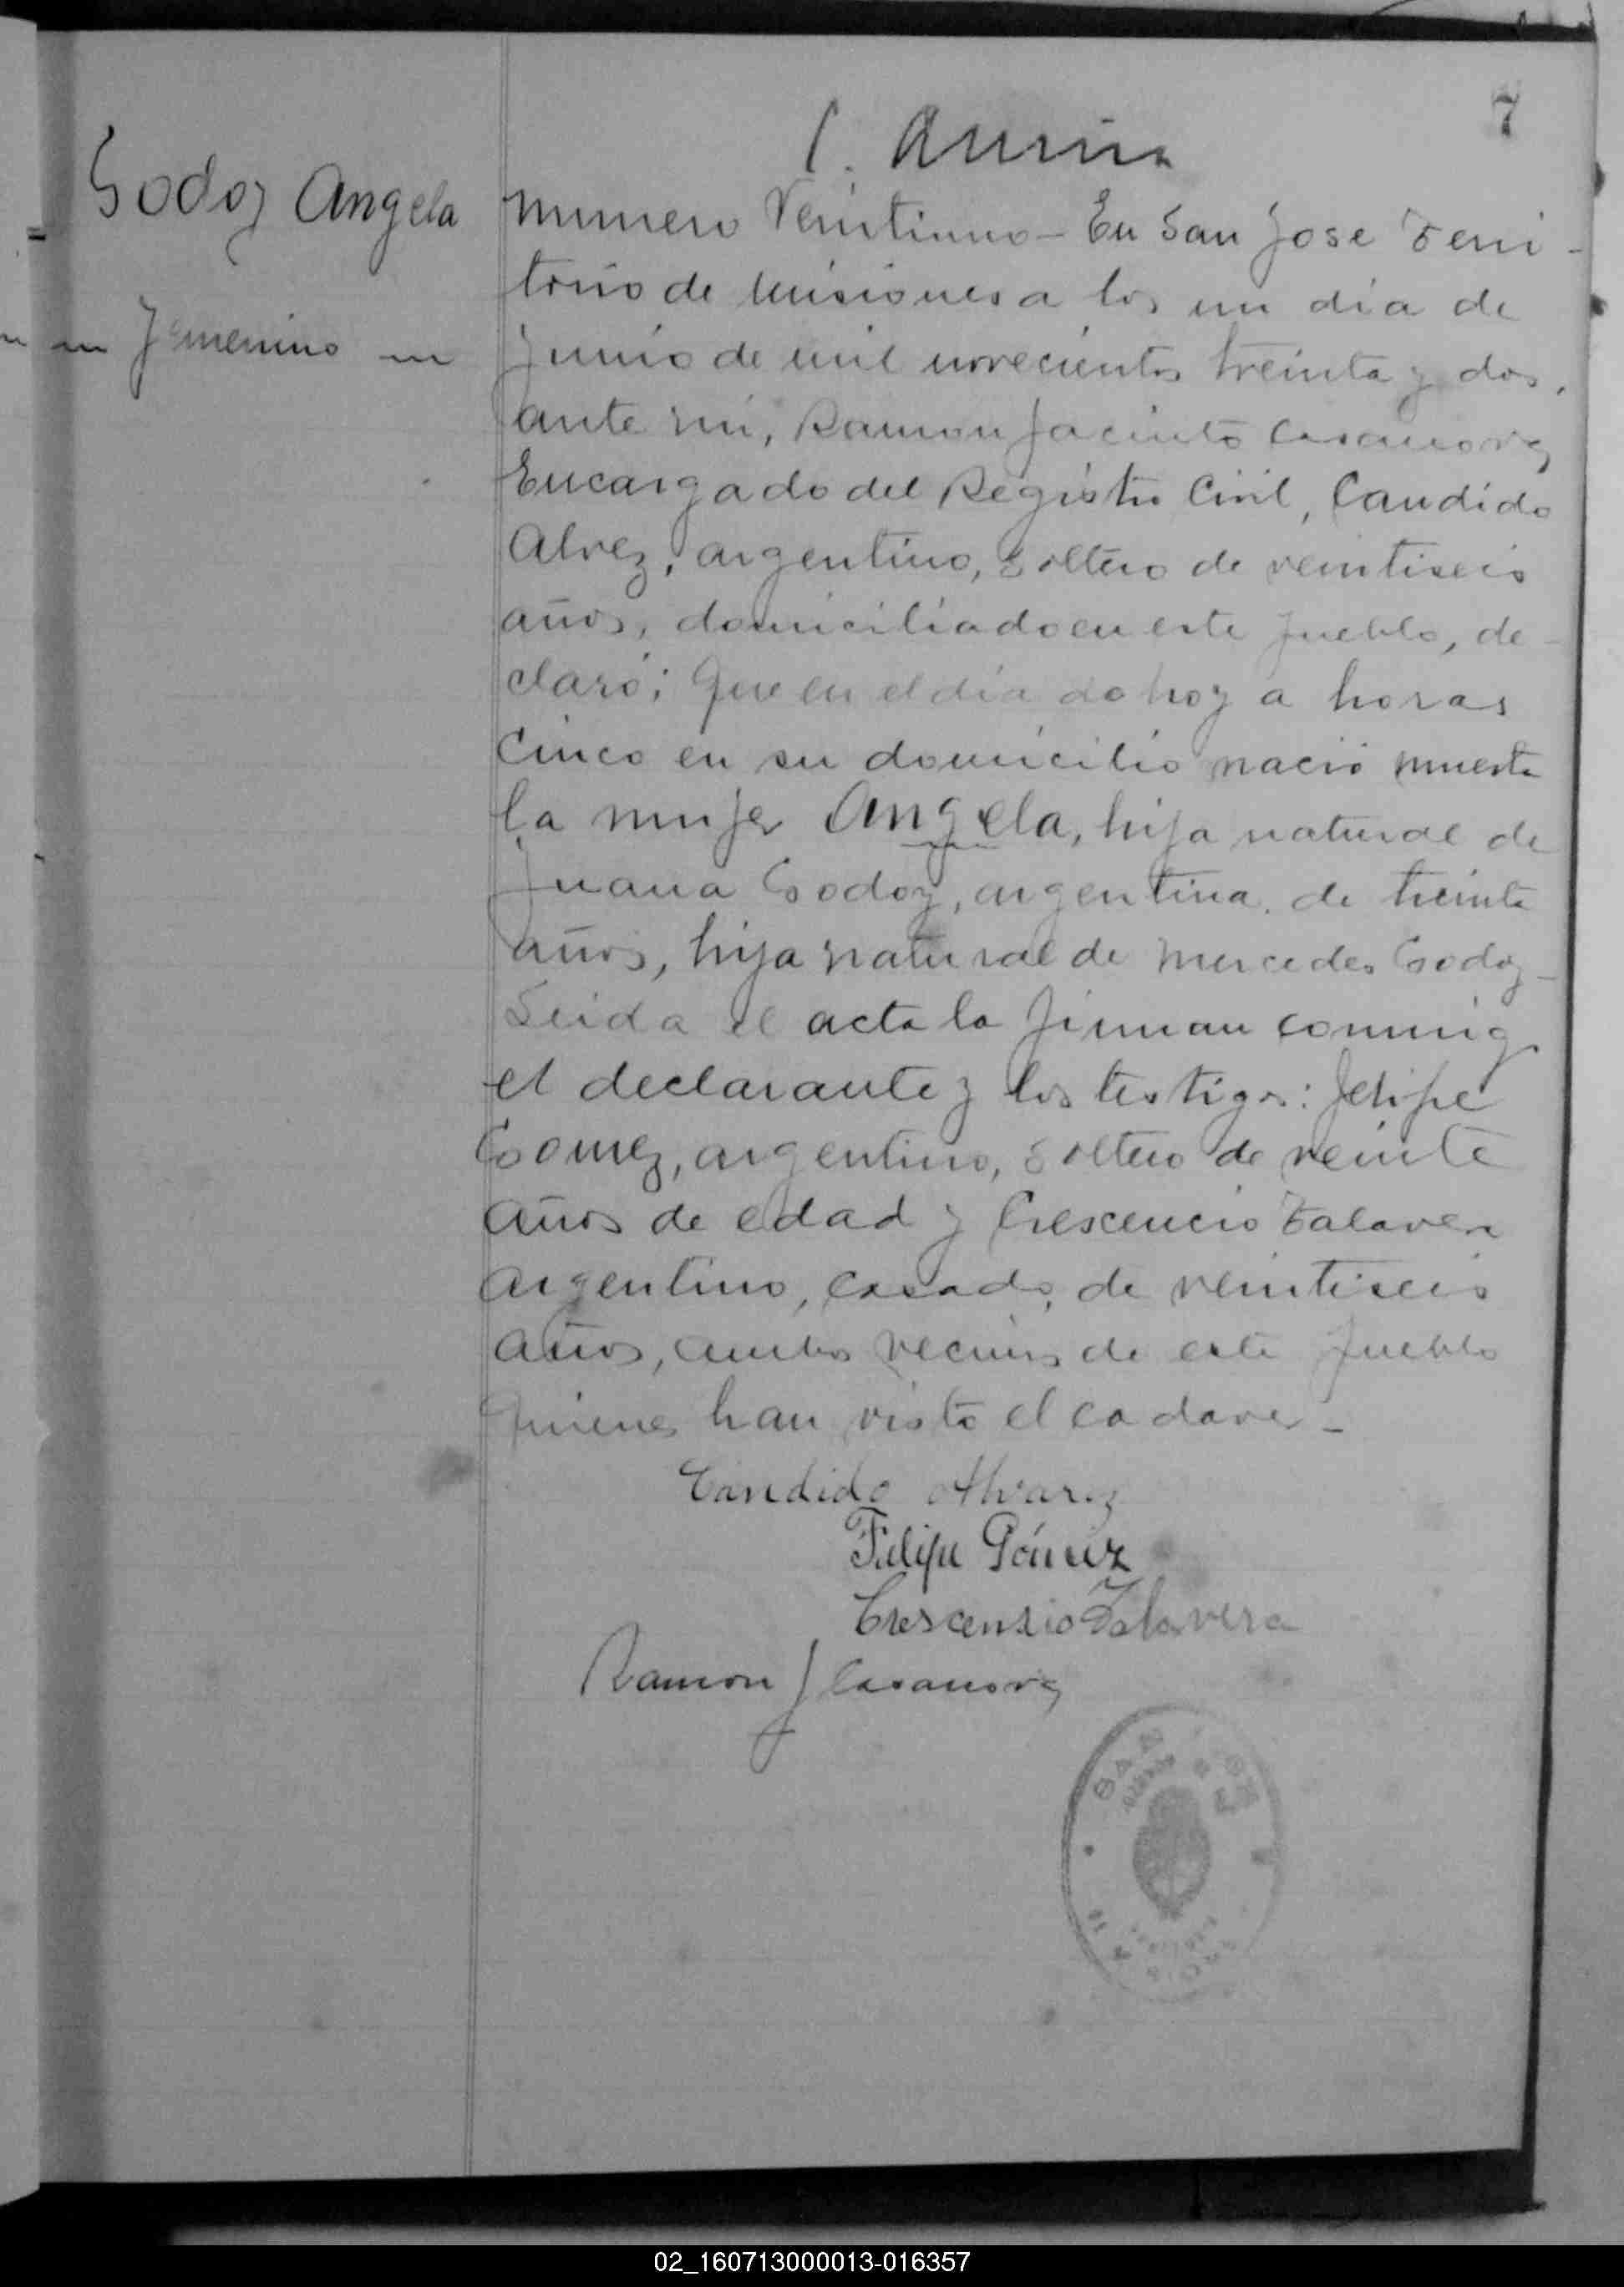 7
Godoy Angela
Femenino
Numero Veintiuno - En San Jose Terri-
torio de Misiones a los un dia de
Junio de mil novecientos treinta y dos,
ante mi, Ramon Jacinto Casanova
Encargado del Registro Civil, Candido
Alvez, argentino, soltero de veintiseis
años, domiciliado en este pueblo, de-
claró: Que en el dia de hoy a horas
cinco en su domicilio nació muerta
la mujer Angela, hija natural de
Juana Godoy, argentina, de treinta
años, hija natural de Mercedes Godoy-
Leida el acta la firman conmigo
el declarante y los testigos: Felipe
Gomez, argentino, soltero de veinte
años de edad y Crescencio Talavera
argentino, casado, de veintiseis
años, ambos vecinos de este pueblo
quienes han visto el cadaver-
Candido Alvarez
Felipe Gómez
Crescensio Talavera
Ramon J Casanova
02_160713000013-016357